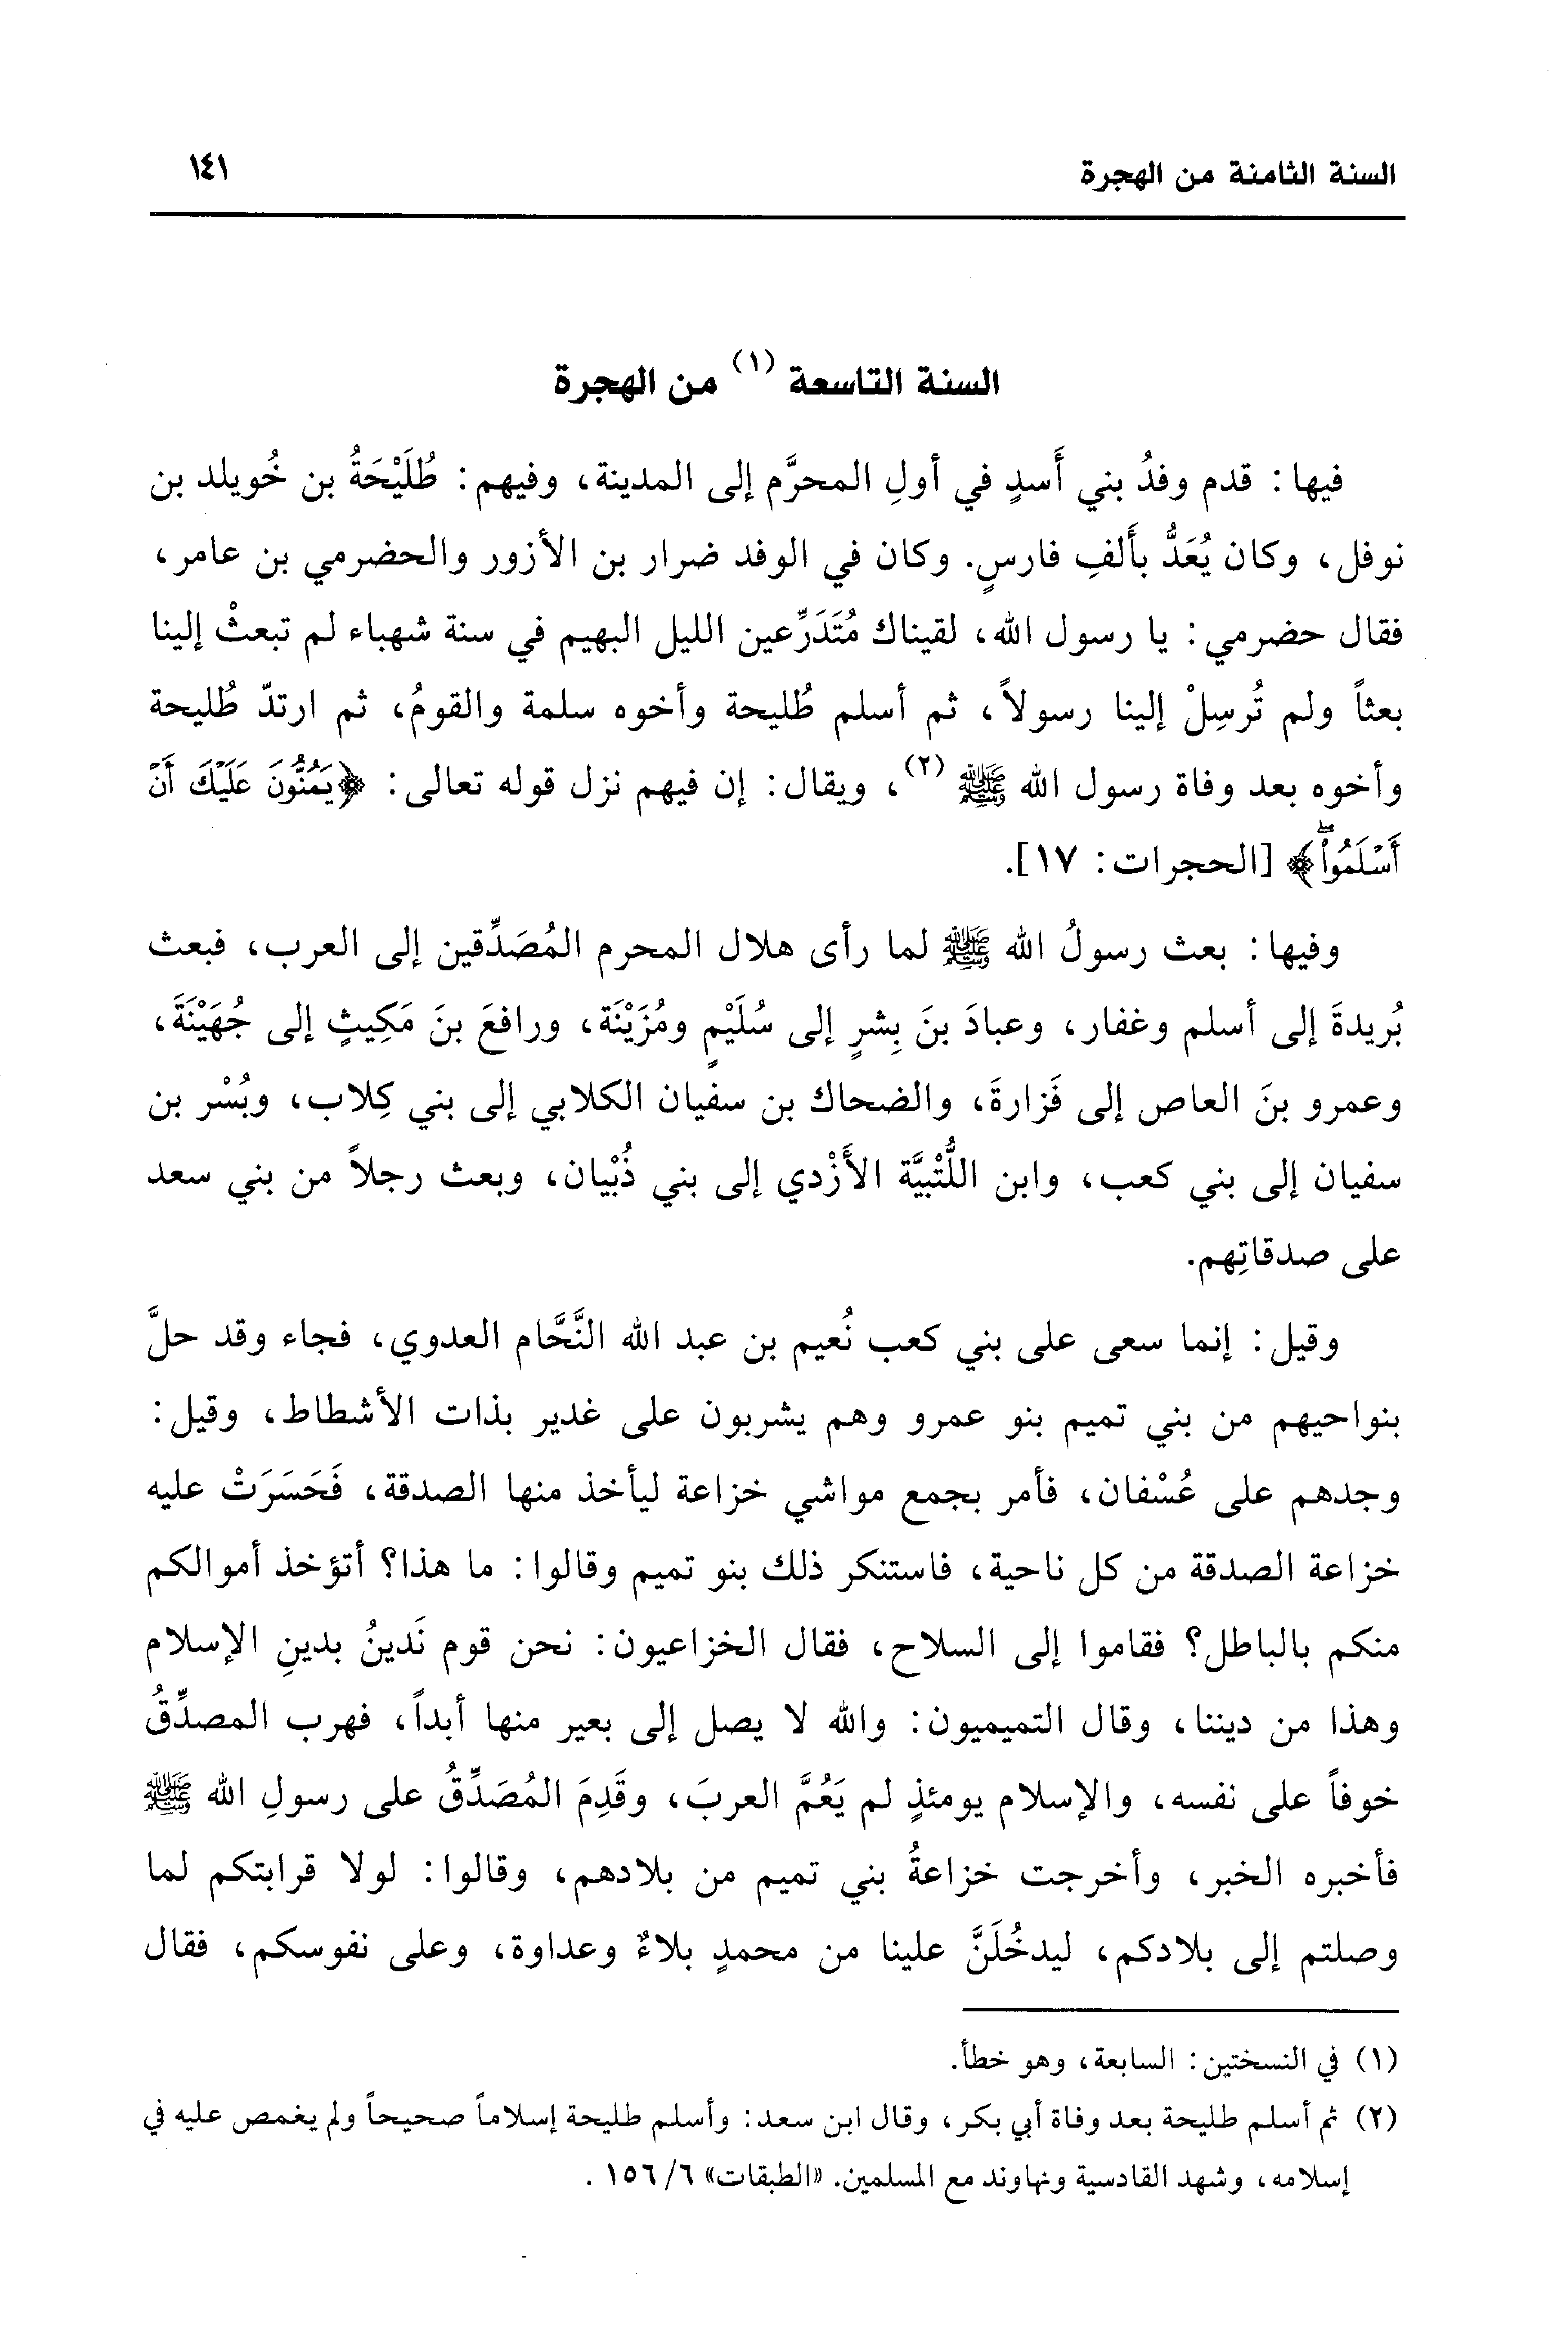 السنة الثامنة من الهجرة ١٤١
السنة التاسعة (١) من الهجرة
فيها: قدم وفدُ بني أَسدٍ في أولِ المحرَّم إلى المدينة، وفيهم: طُلَيْحَةُ بن خُويلد بن
نوفل، وكان يُعَدُّ بأَلفِ فارسٍ. وكان في الوفد ضرار بن الأزور والحضرمي بن عامر،
فقال حضرمي: يا رسول الله، لقيناك مُتَدَرِّعين الليل البهيم في سنة شهباء لم تبعثْ إلينا
بعثاً ولم تُرسِلْ إلينا رسولاً، ثم أسلم طُليحة وأخوه سلمة والقومُ، ثم ارتدّ طُليحة
وأخوه بعد وفاة رسول الله ﷺ (٢)، ويقال: إن فيهم نزل قوله تعالى: ﴿يَمُنُّونَ عَلَيْكَ أَنْ
أَسْلَمُواْۖ﴾ [الحجرات: ١٧].
وفيها: بعث رسولُ الله ﷺ لما رأى هلال المحرم المُصَدِّقين إلى العرب، فبعث
بُريدةَ إلى أسلم وغفار، وعبادَ بنَ بِشرٍ إلى سُلَيْمٍ ومُزَيْنَة، ورافعَ بنَ مَكِيثٍ إلى جُهَيْنَةَ،
وعمرو بنَ العاص إلى فَزارةَ، والضحاك بن سفيان الكلابي إلى بني كِلاب، وبُسْر بن
سفيان إلى بني كعب، وابن اللُّتْبيَّة الأَزْدي إلى بني ذُبْيان، وبعث رجلاً من بني سعد
على صدقاتِهم.
وقيل: إنما سعى على بني كعب نُعيم بن عبد الله النَّحَّام العدوي، فجاء وقد حلَّ
بنواحيهم من بني تميم بنو عمرو وهم يشربون على غدير بذات الأشطاط، وقيل:
وجدهم على عُسْفان، فأمر بجمع مواشي خزاعة ليأخذ منها الصدقة، فَحَسَرَتْ عليه
خزاعة الصدقة من كل ناحية، فاستنكر ذلك بنو تميم وقالوا: ما هذا؟ أتؤخذ أموالكم
منكم بالباطل؟ فقاموا إلى السلاح، فقال الخزاعيون: نحن قوم نَدينُ بدينِ الإسلام
وهذا من ديننا، وقال التميميون: والله لا يصل إلى بعير منها أبداً، فهرب المصدِّقُ
خوفاً على نفسه، والإسلام يومئذٍ لم يَعُمَّ العربَ، وقَدِمَ المُصَدِّقُ على رسولِ الله ﷺ
فأخبره الخبر، وأخرجت خزاعةُ بني تميم من بلادهم، وقالوا: لولا قرابتكم لما
وصلتم إلى بلادكم، ليدخُلَنَّ علينا من محمدٍ بلاءٌ وعداوة، وعلى نفوسكم، فقال
(١) في النسختين: السابعة، وهو خطأ.
(٢) ثم أسلم طليحة بعد وفاة أبي بكر، وقال ابن سعد: وأسلم طليحة إسلاماً صحيحاً ولم يغمص عليه في
إسلامه، وشهد القادسية ونهاوند مع المسلمين. «الطبقات» ٦/ ١٥٦ .